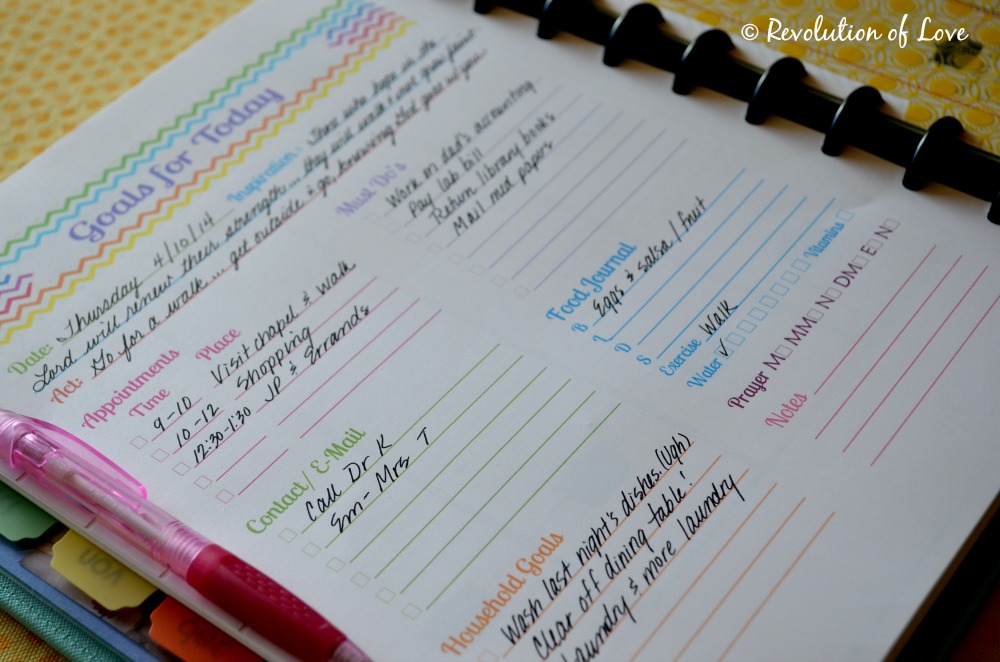 © Revolution of Love
Goals for Today
Date: Thursday 4/10/14 Inspiration: Those who hope in the
Lord will renew their strength... they will walk & not grow faint
Act: Go for a walk... get outside & go, knowing that
Appointments
Time Place
9-10 Visit chapel & walk
10-12 Shopping
12:30-1:30 JP & Errands
Must Do's
Work on dad's accounting
Pay lab bill
Return library books
Mail med papers
Contact/ E-Mail
Call Dr K
Em- Mrs T
Food Journal
B Eggs & salsa / fruit
L
D
S
Exercise Walk
Water ✓ Vitamins
Prayer M MM N DM E N
Notes
Household Goals
Wash last night's dishes. (Ugh)
Clear off dining table!
Laundry & more laundry
von